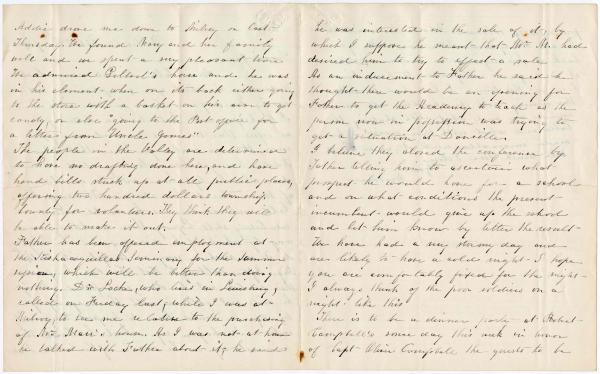 Addie drove me down to Milroy on last
Thursday. We found Mary and her family
well and we spent a very pleasant time
We admired Pollard's horse and he was
in his element when on its back either going
to the store with a basket on his arm to get
candy, or else "going to the Post office for
a letter from Uncle
The people in the Valley are determined
to have no drafting done here, and have
hand bills stuck up at all public places,
offering two hundred dollars township
bounty for volunteers. They think they will
be able to make it out.
Father has been offered employment at
the Kishacoquillas Seminary for the Summer
session, which will be better than doing
nothing. Dr. Locke, who lives in Lewisburg,
called on Friday last, while I was at
Milroy, to see me relative to the purchasing
of Mrs. Marr's house. As I was not at home
he talked with Father about it; he said
he was interested in the sale of it, by
which I suppose he meant that Mrs. M. had
desired him to try to effect a sale.
As an inducement to Father he said he
thought there would be an opening for
Father to get the Academy to teach as the
person now in possession was trying to
get a situation at Danville.
I believe they closed the conference by
Father telling him to ascertain what
prospect he would have for a school
and on what conditions the present
incumbent would give up the school
and let him know by letter the result
We have had a very stormy day and
are likely to have a cold night. I hope
you are comfortably fixed for the night.
I always think of the poor soldiers on a
night like this.
There is to be a dinner party at Robert
Campbell's some day this week in honor
of Capt. Oliver Campbell the guests to be